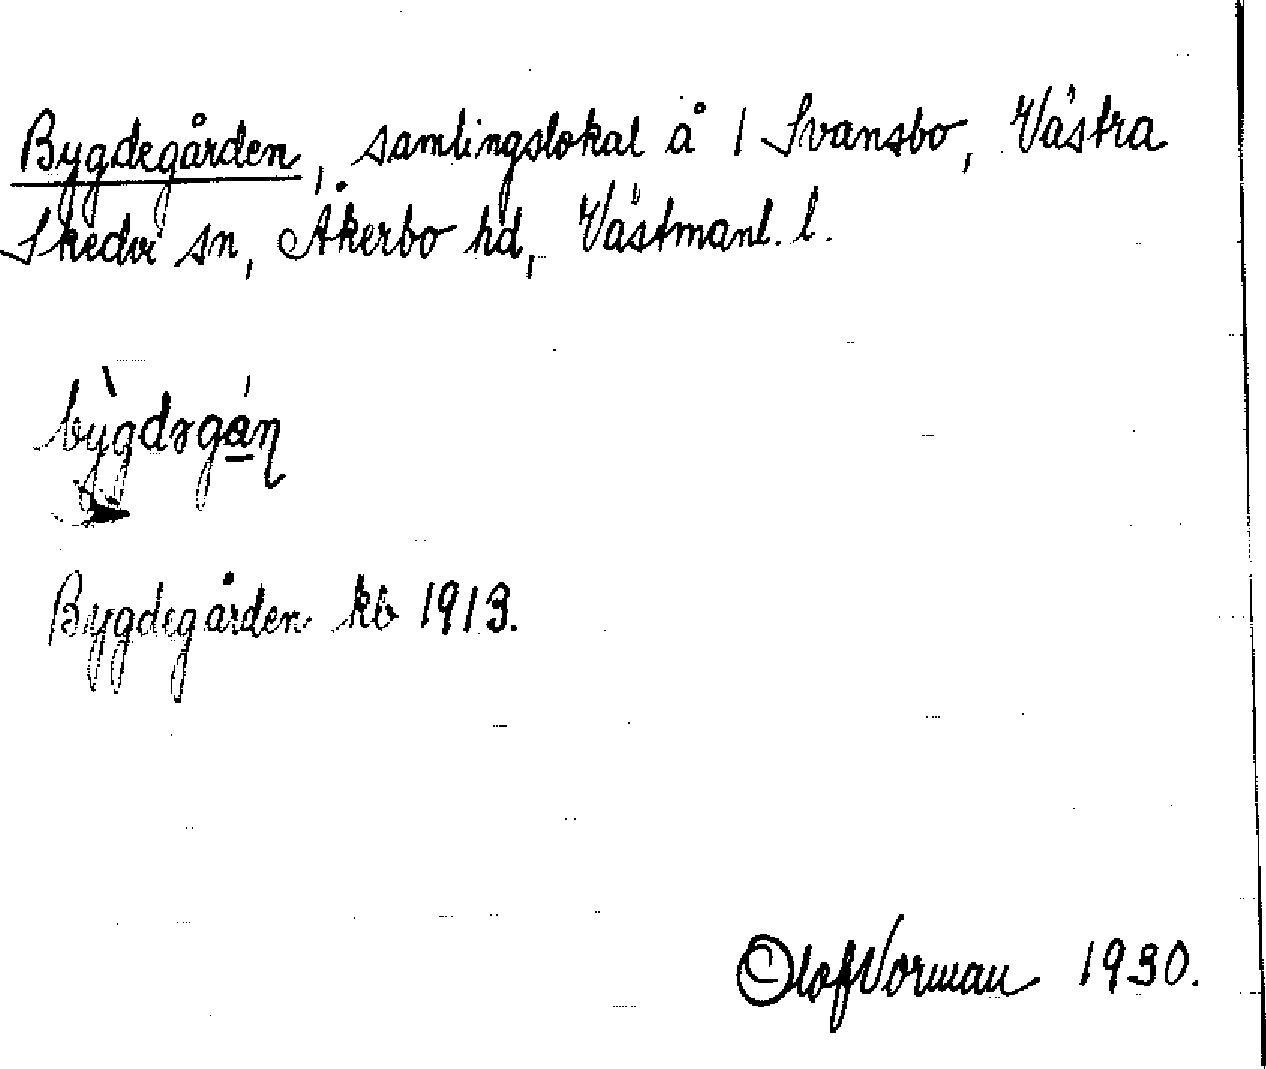 Bygdegården, samlingslokal å 1 Svansbo, Västra
Skedvi sn, Åkerbo hd, Västmanl. l.
bỳgdəgán
Bygdegården kb 1913.
Olof Vorman 1930.